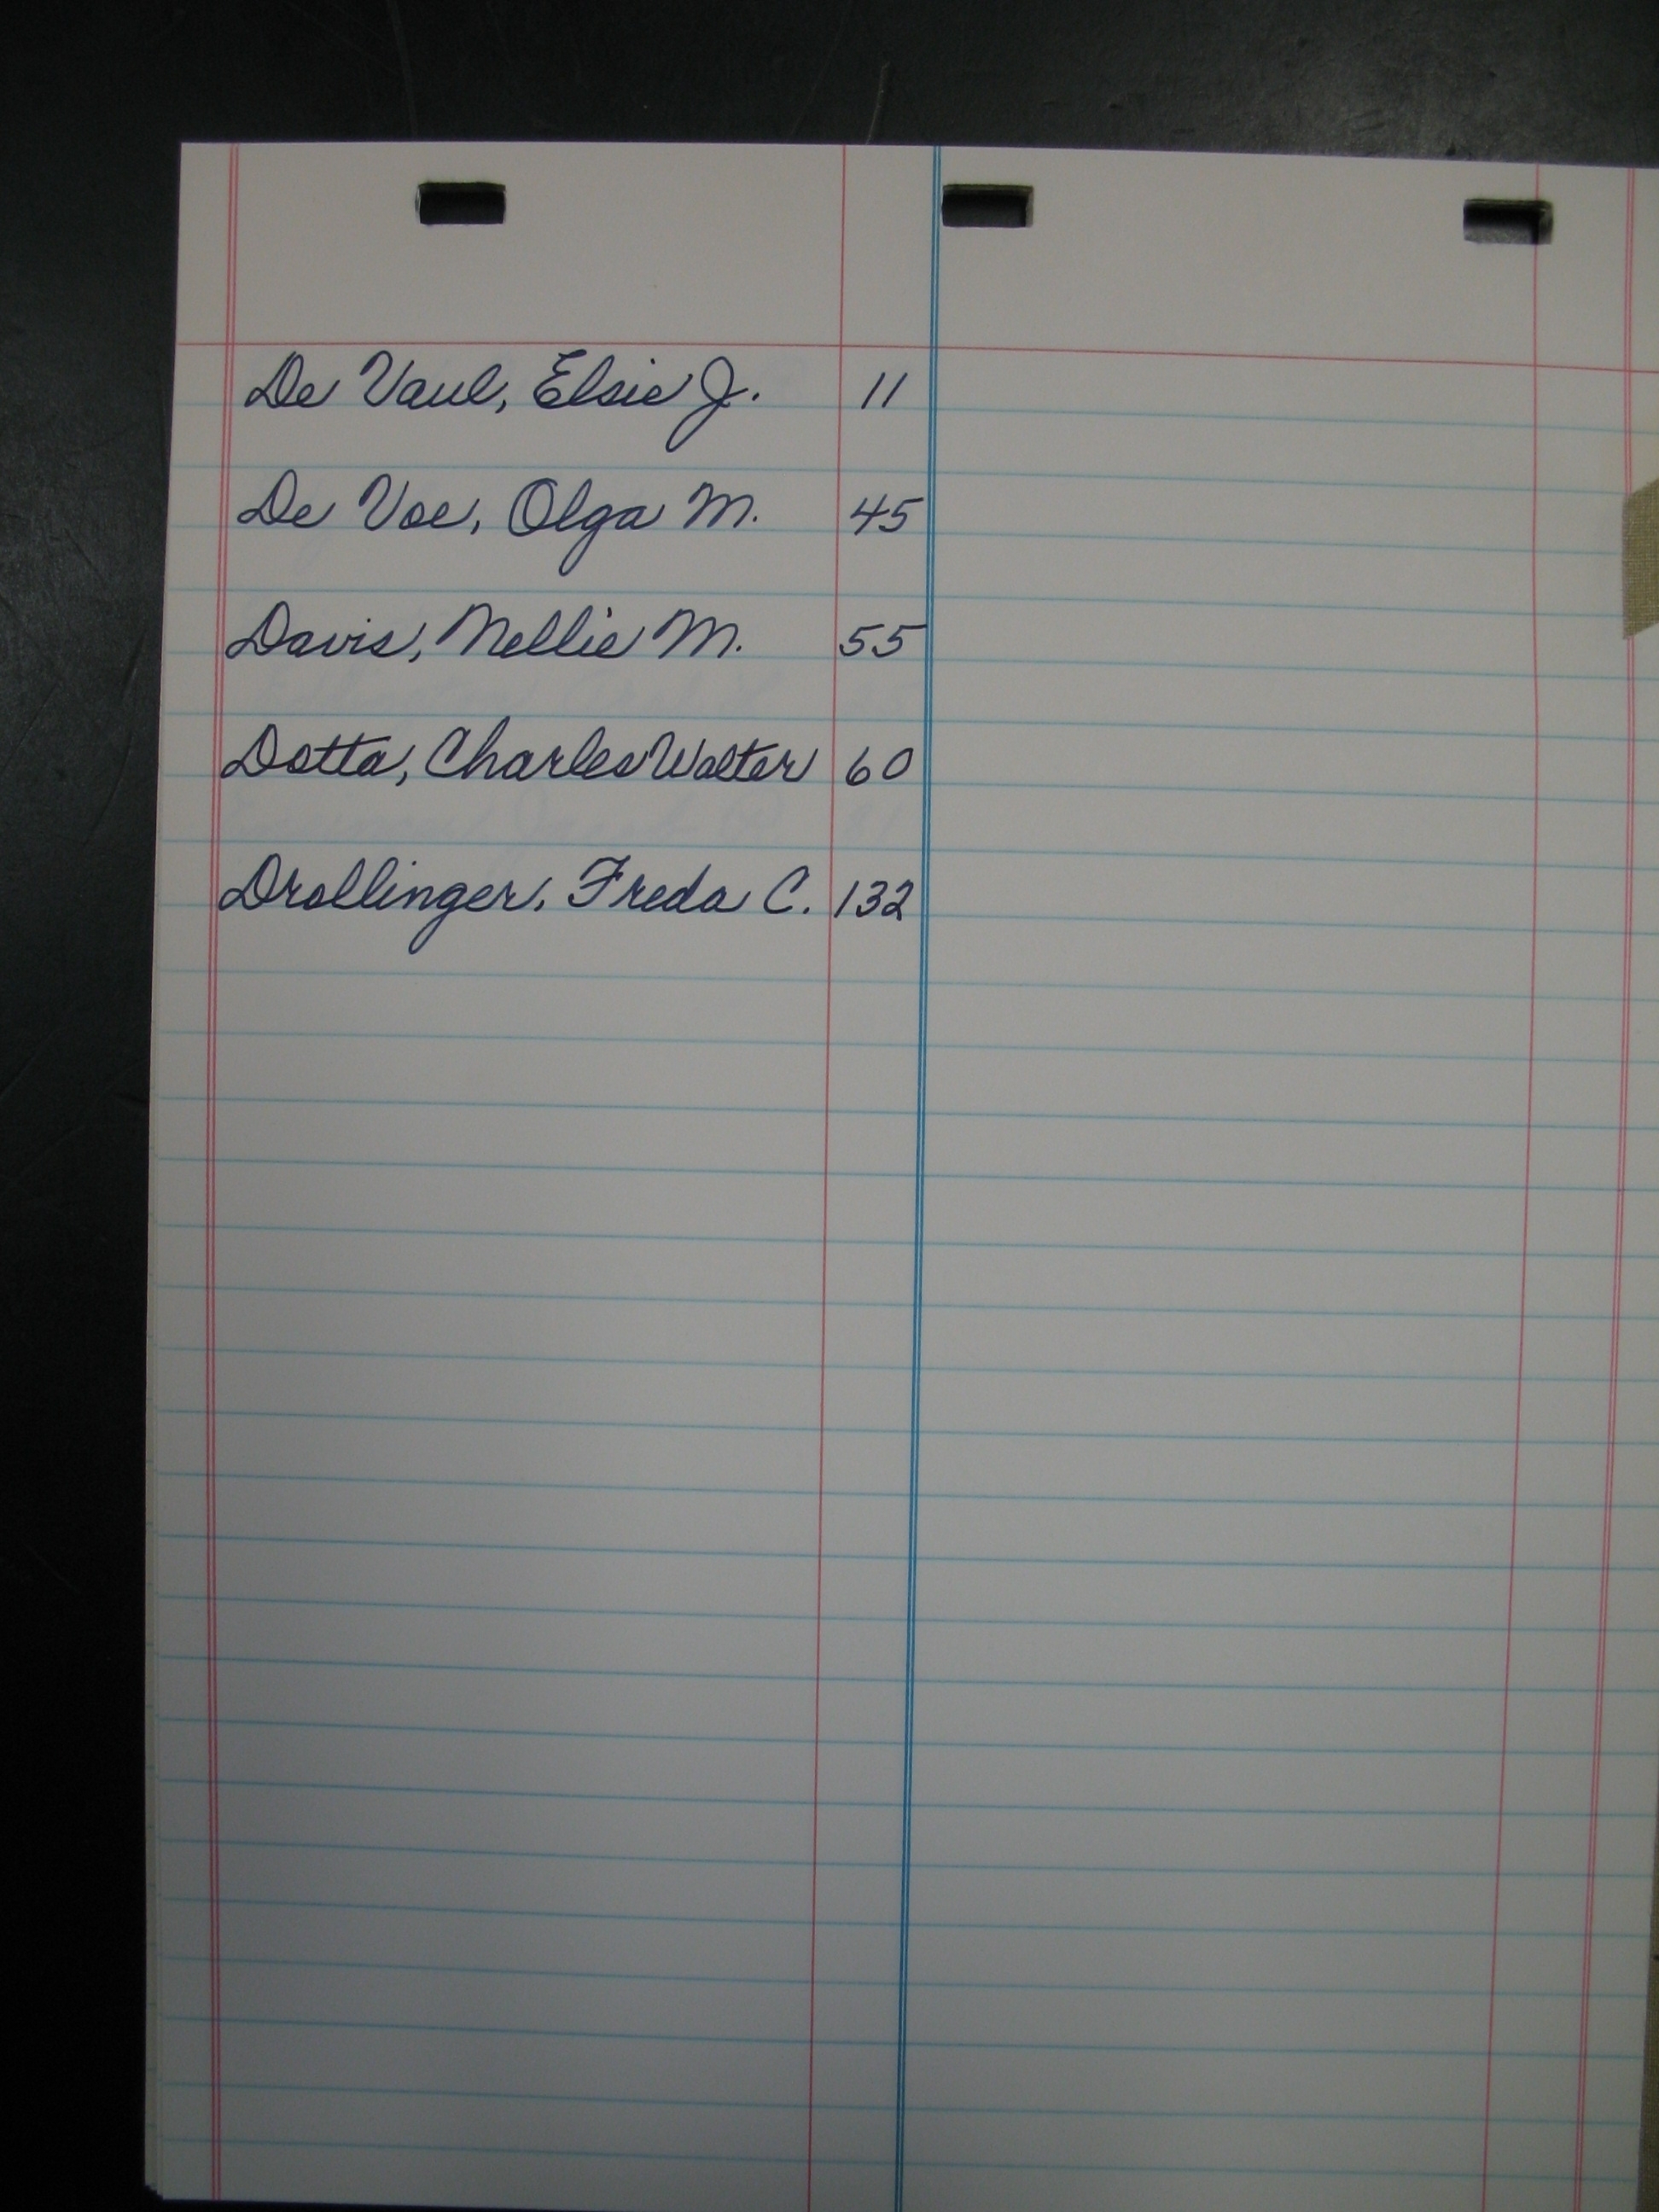 De Vaul, Elsie J. 11
De Voe, Olga M. 45
Davis, Nellie M. 55
Dotta, Charles Walter 60
Drollinger, Freda C. 132